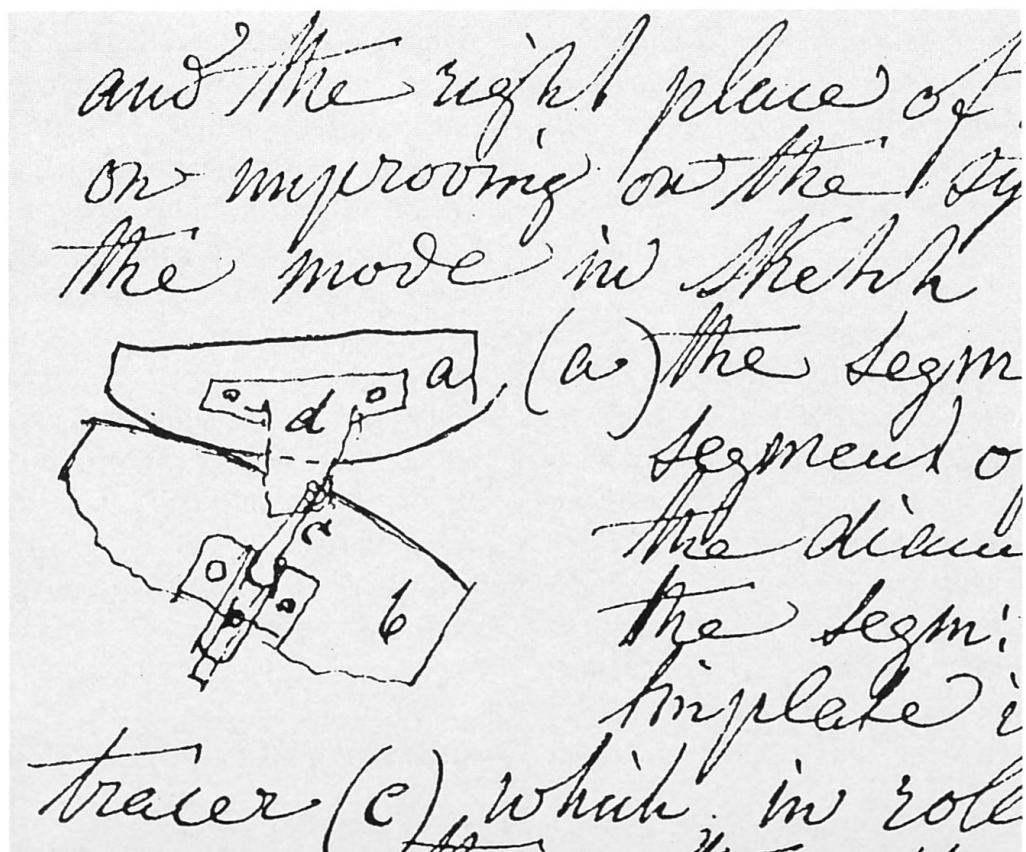 and the right place of
on improving on the sy
the mode in sketch
a (a) the segm
d segment o
c the diam
b the segm:
tinplate i
tracer (c) which in role